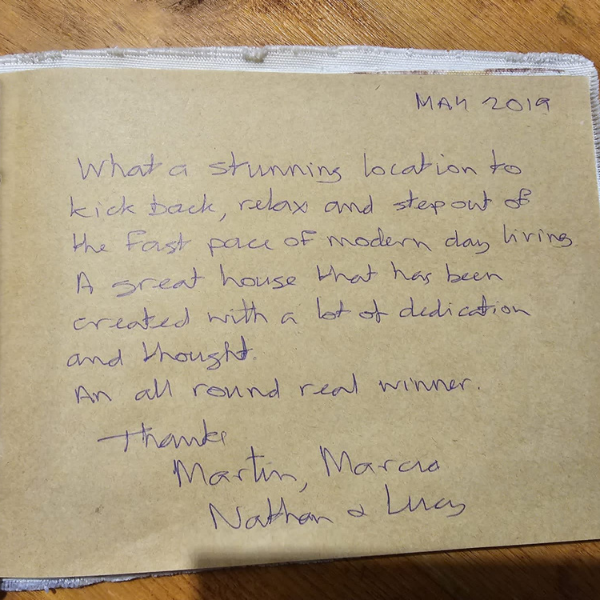 MAY 2019
What a stunning location to
kick back, relax and step out of
the fast pace of modern day living
A great house that has been
created with a lot of dedication
and thought.
An all round real winner.
Thanks
Martin, Marcio
Nathan & Lucas